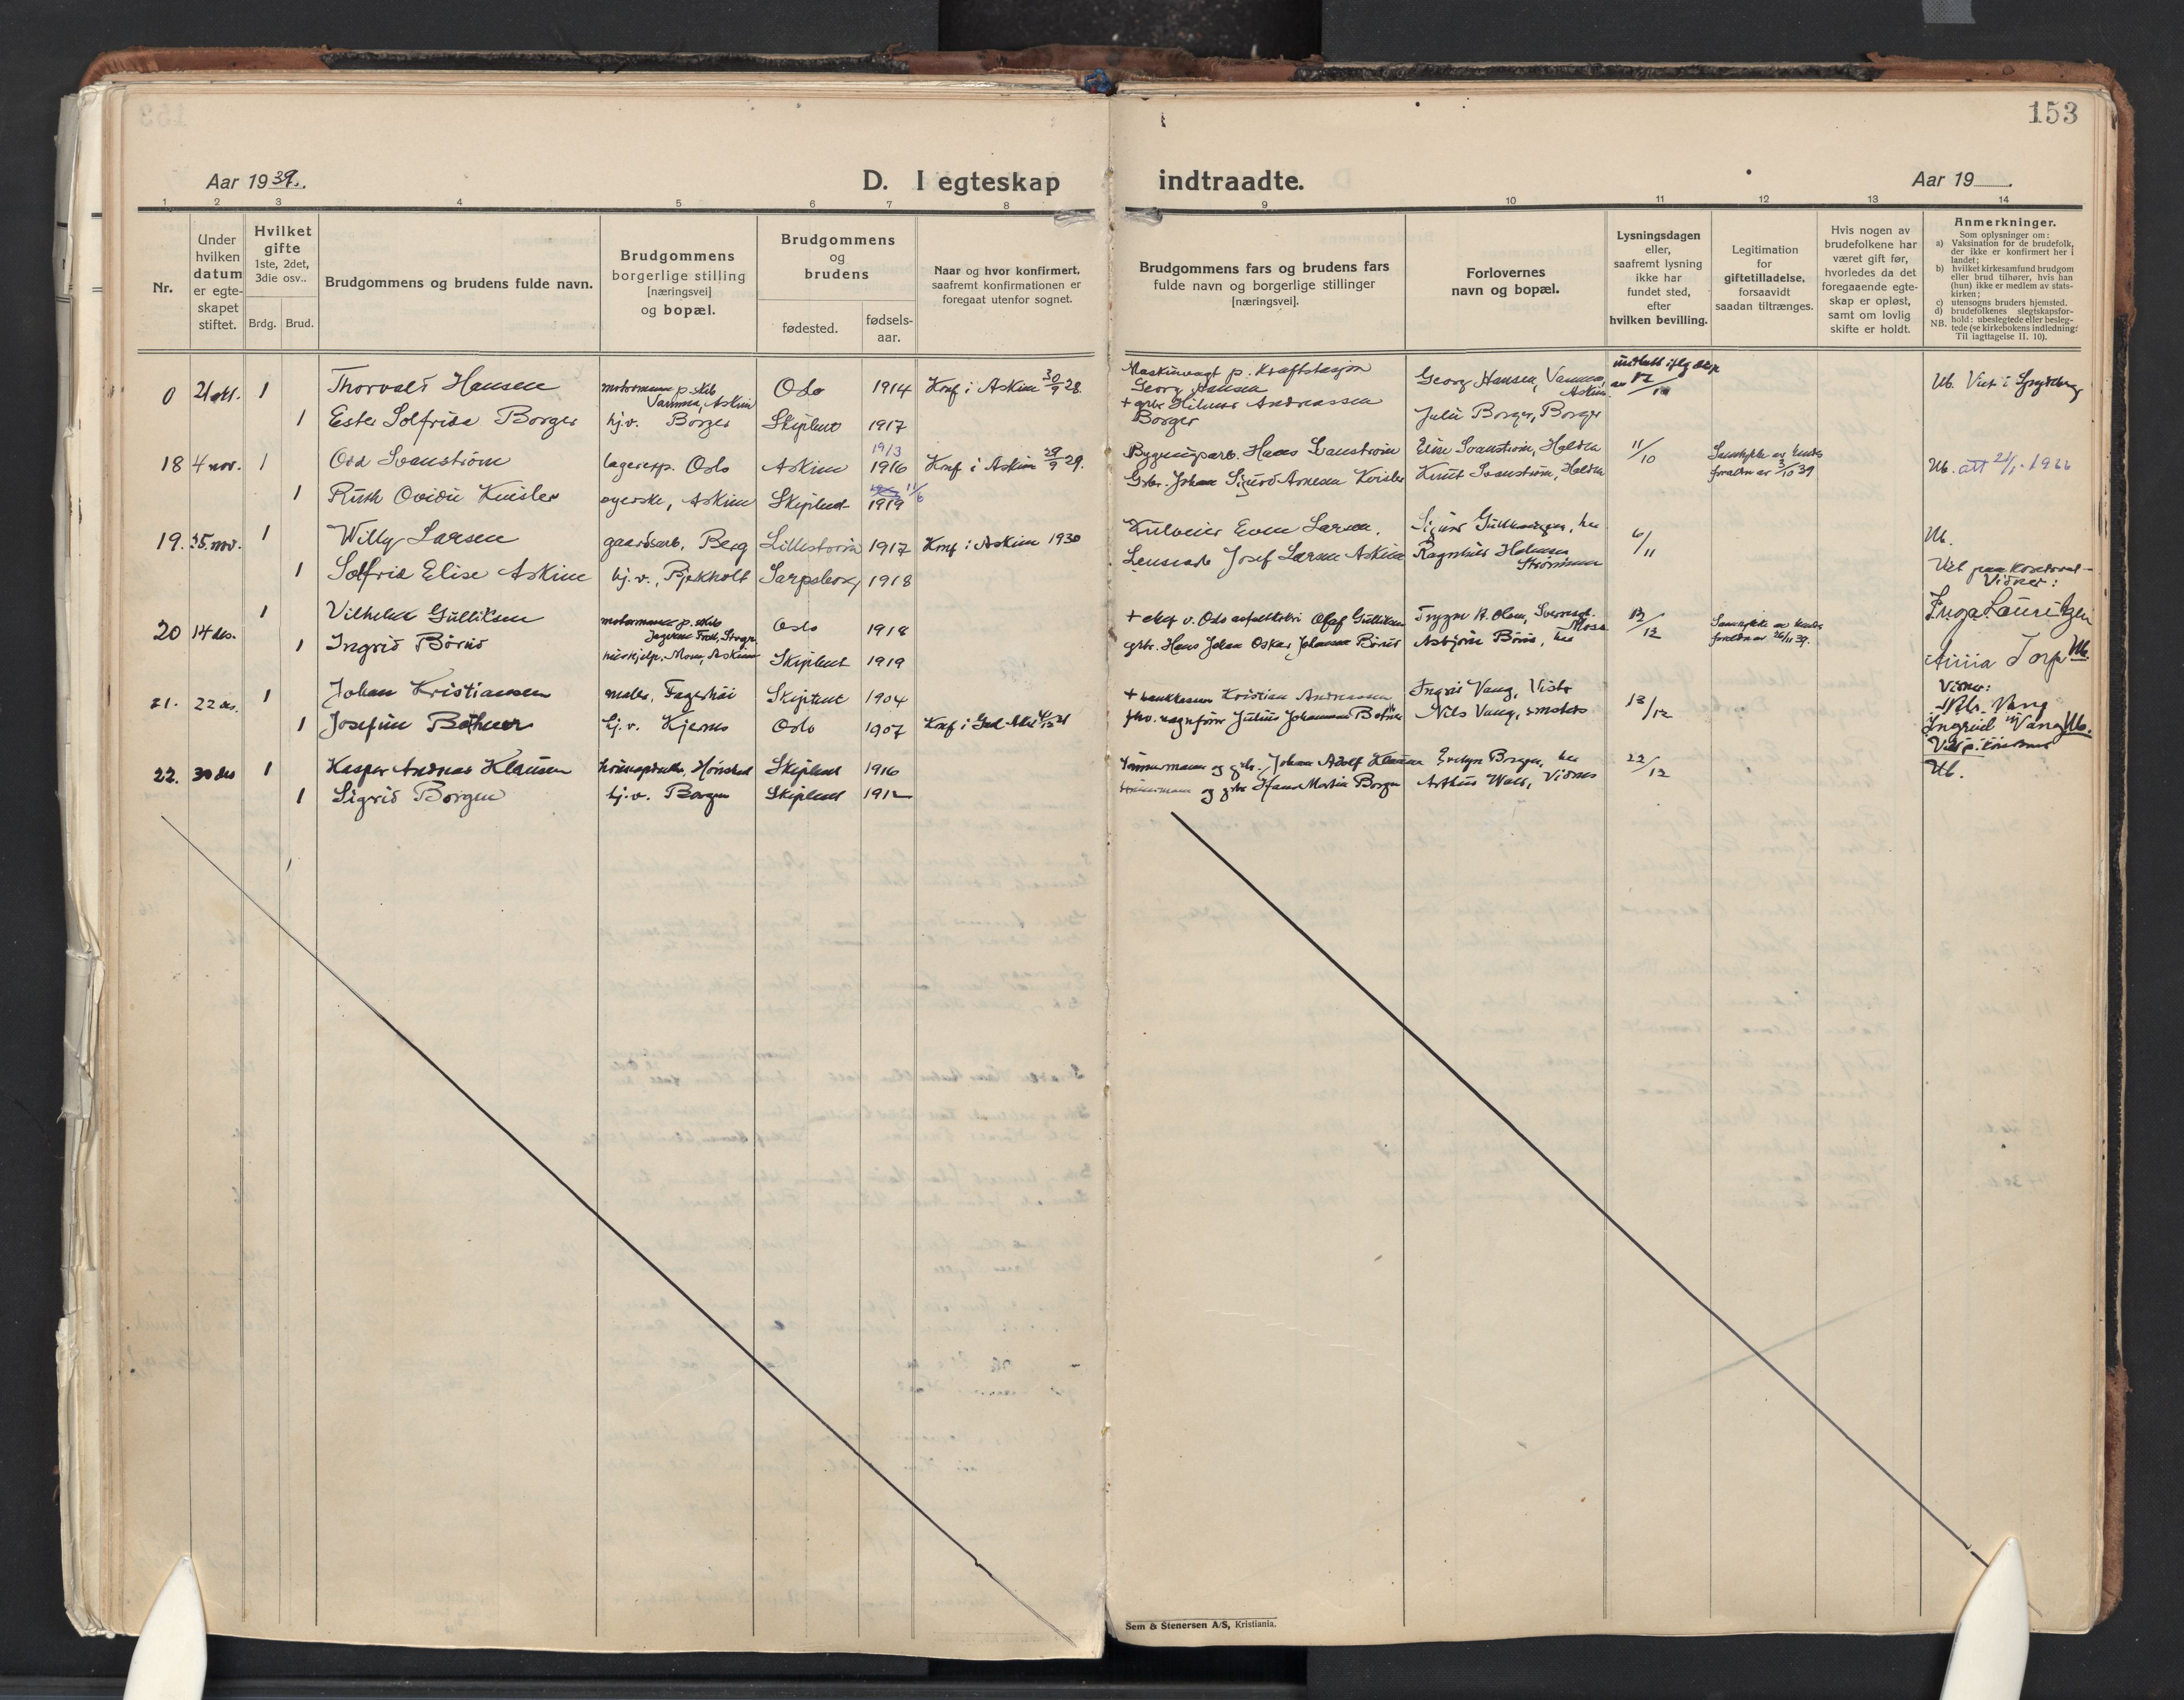 153
Aar 1939.
D. I egteskap indtraadte.
Aar 19
1 2 3 4 5 6 7 8 9 10 11 12 13 14
Nr.
Under
hvilken
datum
er egte-
skapet
stiftet.
Hvilket
gifte
1ste, 2det,
3die osv..
Brdg. Brud.
Brudgommens og brudens fulde navn.
Brudgommens
borgerlige stilling
[næringsvei]
og bopæl.
Brudgommens
og
brudens
fødested.
fødsels-
aar.
Naar og hvor konfirmert,
saafremt konfirmationen er
foregaat utenfor sognet.
Brudgommens fars og brudens fars
fulde navn og borgerlige stillinger
[næringsvei].
Forlovernes
navn og bopæl.
Lysningsdagen
eller,
saafremt lysning
ikke har
fundet sted,
efter
hvilken bevilling.
Legitimation
for
giftetilladelse,
forsaavidt
saadan tiltrænges.
Hvis nogen av
brudefolkene har
været gift før,
hvorledes da det
foregaaende egte-
skap er opløst,
samt om lovlig
skifte er holdt.
Anmerkninger.
Som oplysninger om:
a) Vaksination for de brudefolk,
der ikke er konfirmert her i
landet;
b) hvilket kirkesamfund brudgom
eller brud tilhører, hvis han
(hun) ikke er medlem av stats-
kirken;
c) utensogns bruders hjemsted.
d) brudefolkenes slegtskapsfor-
NB. hold: ubeslegtede eller besleg-
tede (se kirkebokens indledning:
Til iagttagelse II. 10).
0 21 okt. 1 Thorvald Hansen
Askim Oslo 1914 Konf i Askim 30/9 28.
Maskinvagt p. Kraftstasjon
Georg Hansen
Georg Hansen, Vamma, Askim
Ub. Viet i Spydeberg
1 Ester Solfrida Borger hj.v. Borger Skiptvet 1917
+ grbr Hilmar Andreassen
Borger
Julie Borger, Borger
18 4 nov. 1 Odd Svanstrøm lagereksp. Oslo Askim 19/3 1916 Konf i Askim 29/9 29.
Bygningsarb. Hans Svanstrøm Elise Svanstrøm, Halden 11/10
Ub. att 24/1-1966
1 Ruth Ovidie Kvisler syerske, Askim Skiptvet 11/6 1919
Grbr. Johan Sigurd Arnesen Kvisler Knut Svanstrøm, Halden
19. 25. nov. 1 Willy Larsen gaardsarb. Berg Lillestrøm 1917 Konf i Askim 1930
Even Larsen. 6/11 Ub.
1 Solfrid Elise Askim hj.v., Bjekholt Sarpsborg 1918
Josef Larsen Askim Ragnhild Halvorsen
Strømmen
Viet paa kontoret
Vidner:
Inga Lauritzen
20 14 des. 1 Vilhelm Gulliksen
Oslo 1918
Olaf Gulliksen Trygve R. Olsen,
Moss 12/12
1 Ingrid Børud
hushjelp, Askim Skiptvet 1919
grbr. Hans Johan Oskar Johansen Børud Asbjørn Børud, her
Anna Torp Ub.
21. 22 des. 1 Johan Kristiansen maler, Fagerhøi Skiptvet 1904
Kristian Andreassen Ingrid Vang, Vister 13/12
Vidner:
Nils Vang
Ingrid Vang Ub.
1 Josefine Bothner hj.v. Kjernes Oslo 1907
Julius Johannsen Bothner Nils Vang,
22. 30 des 1 Kasper Andreas Klausen Skiptvet 1916
Tømmermann og grbr. Johan Adolf Klausen Evelyn Borgen, her 22/12
Ub.
1 Sigrid Borgen hj.v. Borgen Skiptvet 1912
og grbr Hans Martin Borgen Arthur Wold, Vidnes
Sem & Stenersen A/S, Kristiania.